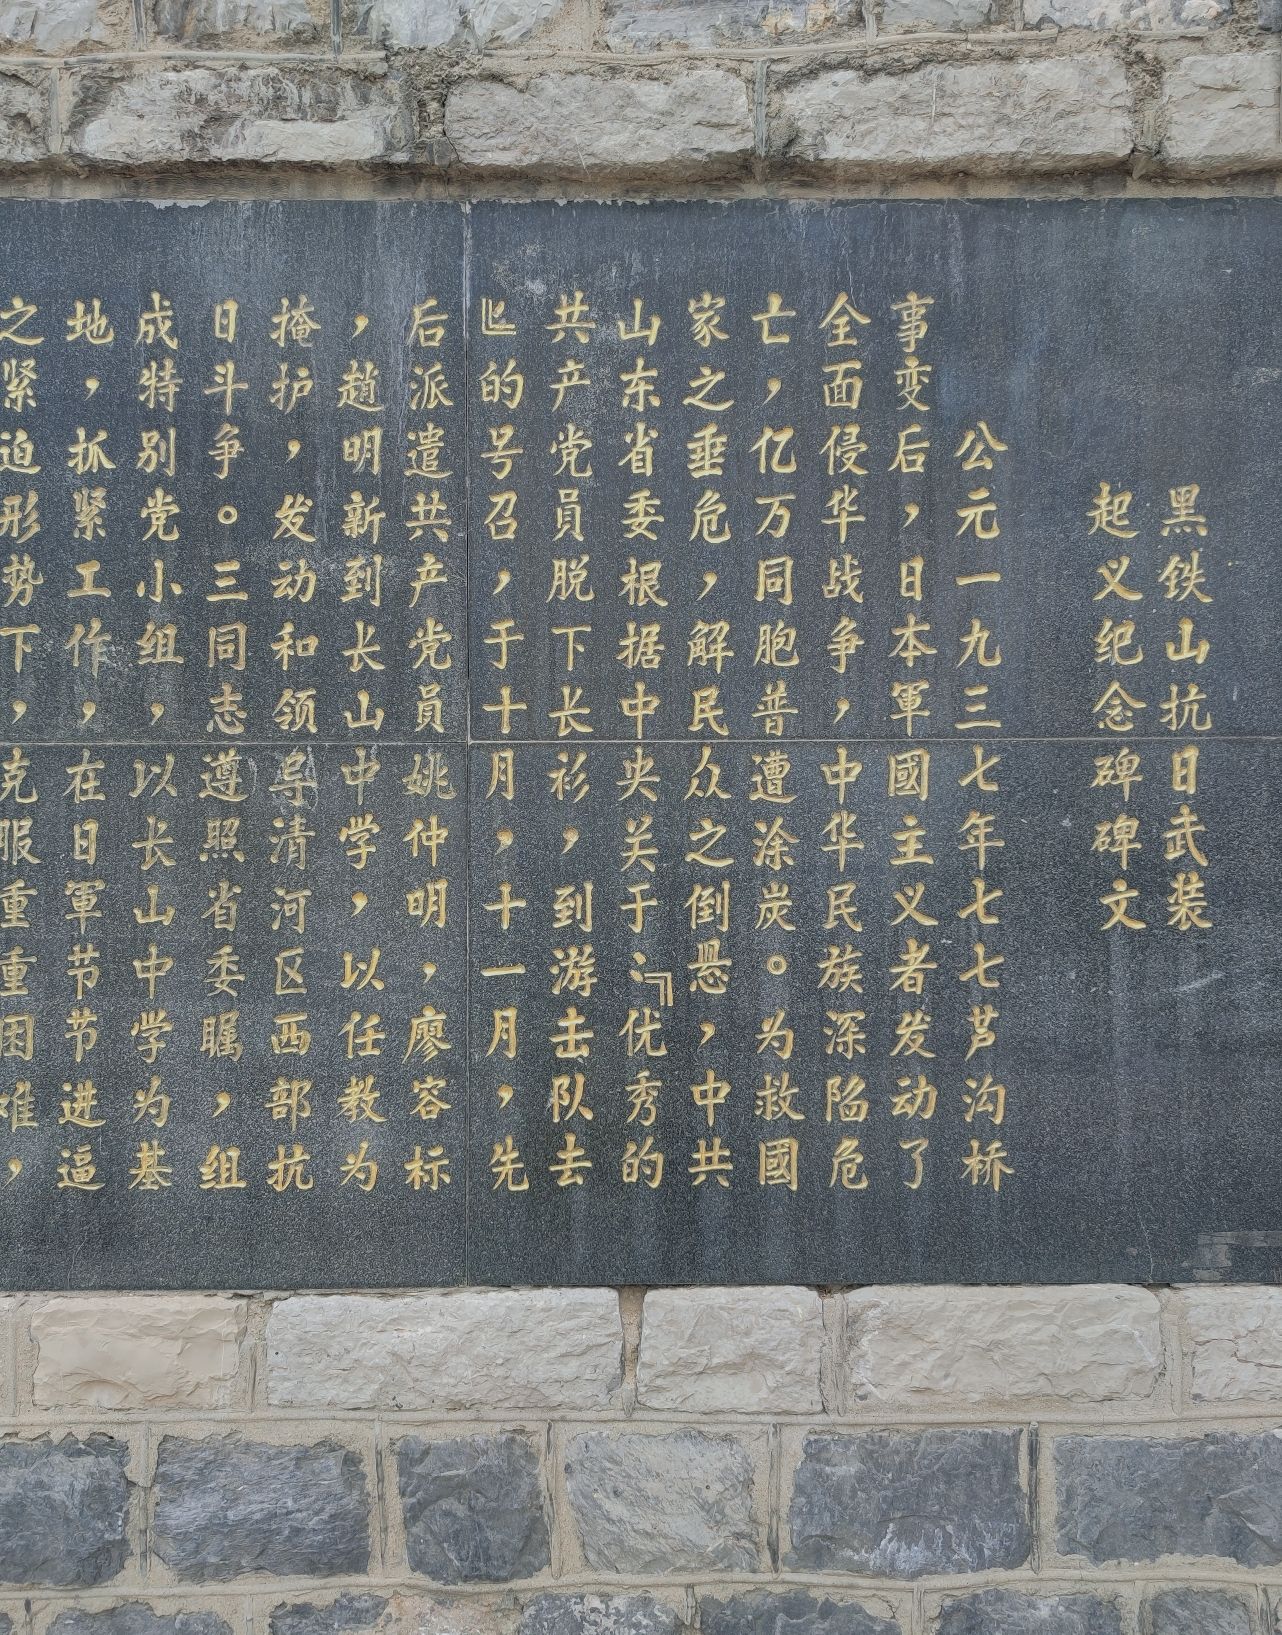 黑铁山抗日武装
起义纪念碑碑文
公元一九三七年七七芦沟桥
事变后，日本軍國主义者发动了
全面侵华战争，中华民族深陷危
亡，亿万同胞普遭涂炭。为救國
家之垂危，解民众之倒悬，中共
山东省委根据中央关于：『优秀的
共产党員脱下长衫，到游击队去
』的号召，于十月，十一月，先
后派遣共产党員姚仲明，廖容标
，趙明新到长山中学，以任教为
掩护，发动和领导清河区西部抗
日斗争。三同志遵照省委瞩，组
成特别党小组，以长山中学为基
地，抓紧工作，在日軍节节进逼
之紧迫形势下，克服重重困难，